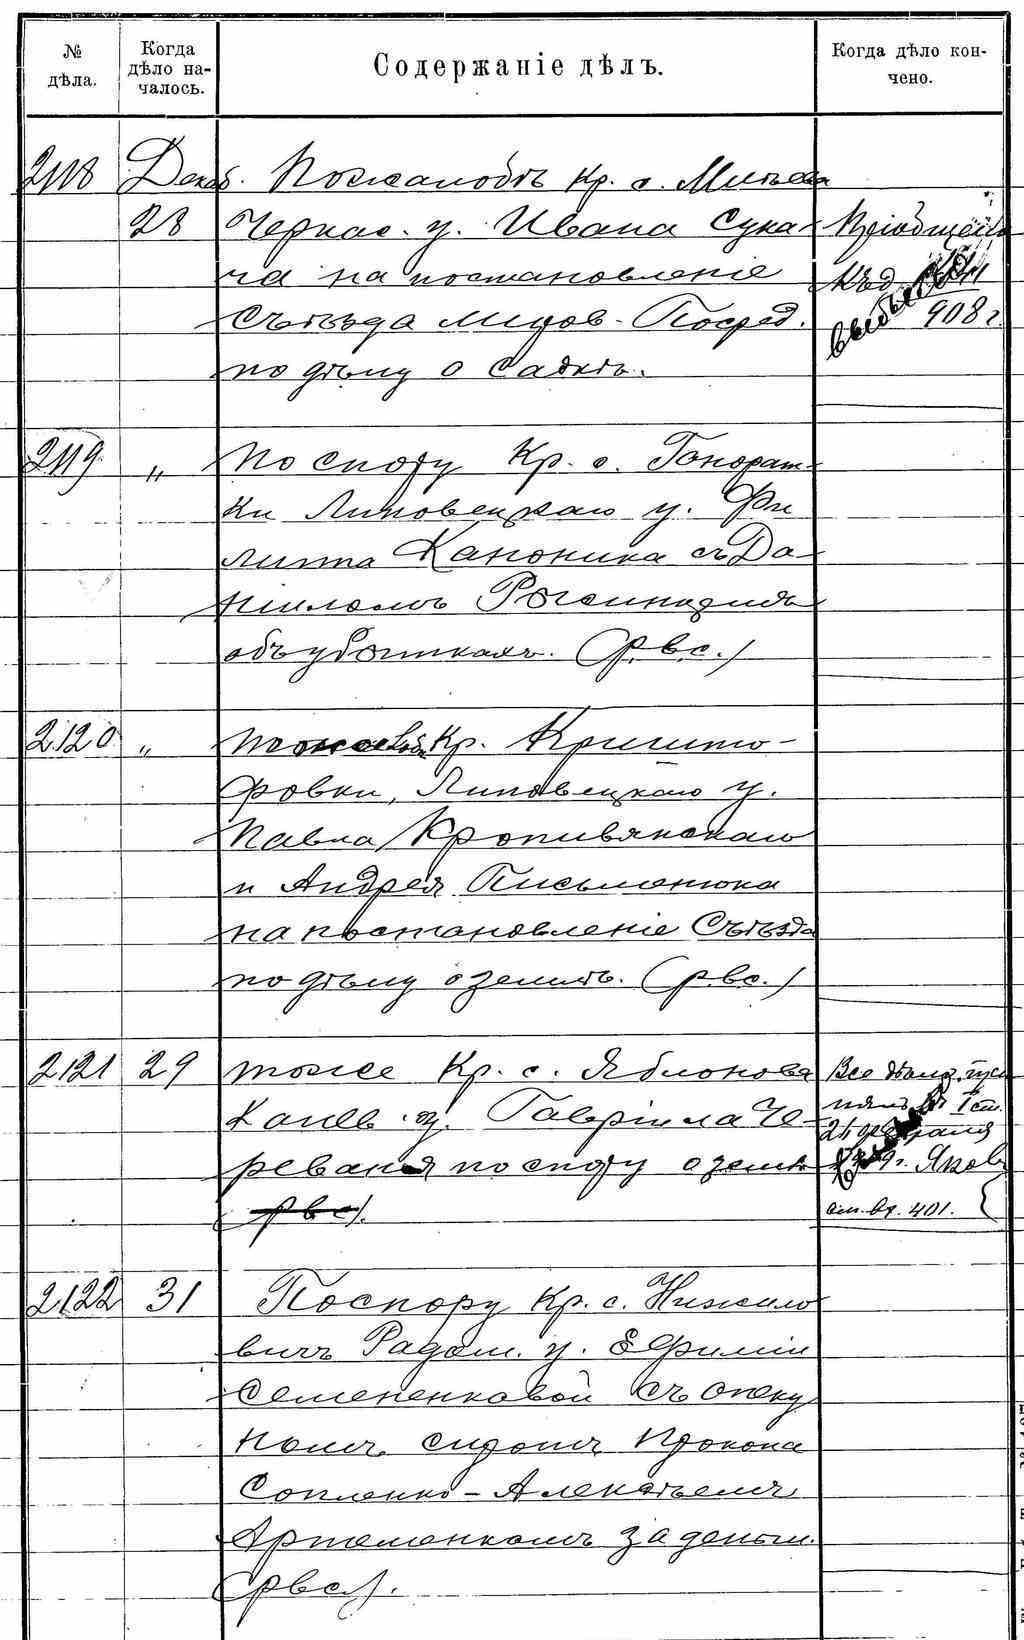 № дѣла.
Когда дѣло на-
чалось.
Содержаніе дѣлъ.
Когда дѣло кон-
чено.
2118 Декаб. По жалобѣ кр. с. Млѣева
28 Черкас. у. Ивана Сука-
ча на постановленіе
Съѣзда миров. Посред.
по дѣлу о садкѣ.
Пріобщено
къ д.
908 г.
2119 „ По спору Кр. с. Гонорат-
ки Липовецкаго у. Фи
липпа Каноника съ Да-
ниломъ
объ убыткахъ. (р.в.с.)
2120 „ тоже кр. Кришто-
фовки, Липовецкаго у.
Павла Кропивянскаго
и Андрея Письменюка
на постановленіе Съѣзда
по дѣлу о землѣ. (р.в.с.)
2121 29 тоже Кр. с. Яблонова
Канев. у. Гавріила Че-
реваня по спору о землѣ
(рвс).
Все дѣло
I ст.
24 февраля
1909 г. Яковъ
401.
2122 31 По спору Кр. с. Нижило
вичъ Радом. у. Ефиміи
Семененковой съ опеку
номъ сиротъ Прокопа
Сопленко - Алексѣемъ
Артеменкомъ за деньги.
(рвс).